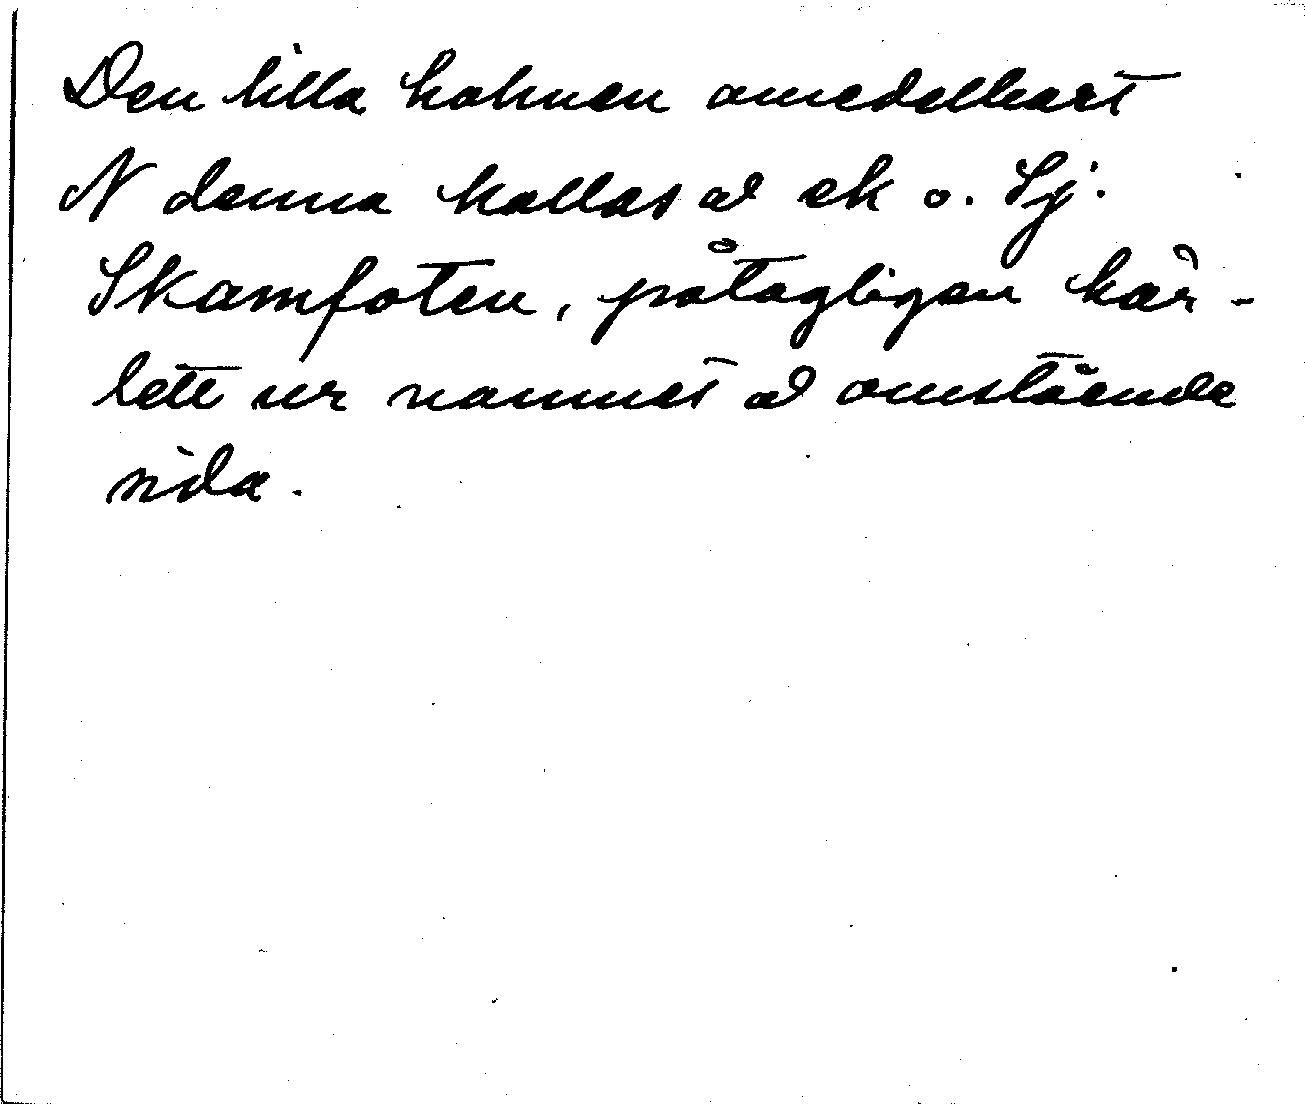 Den lilla holmen omedelbart
N denna kallas å ek o. Sj.
Skamfoten, påtagligen här-
lett ur namnet å omstående
sida.